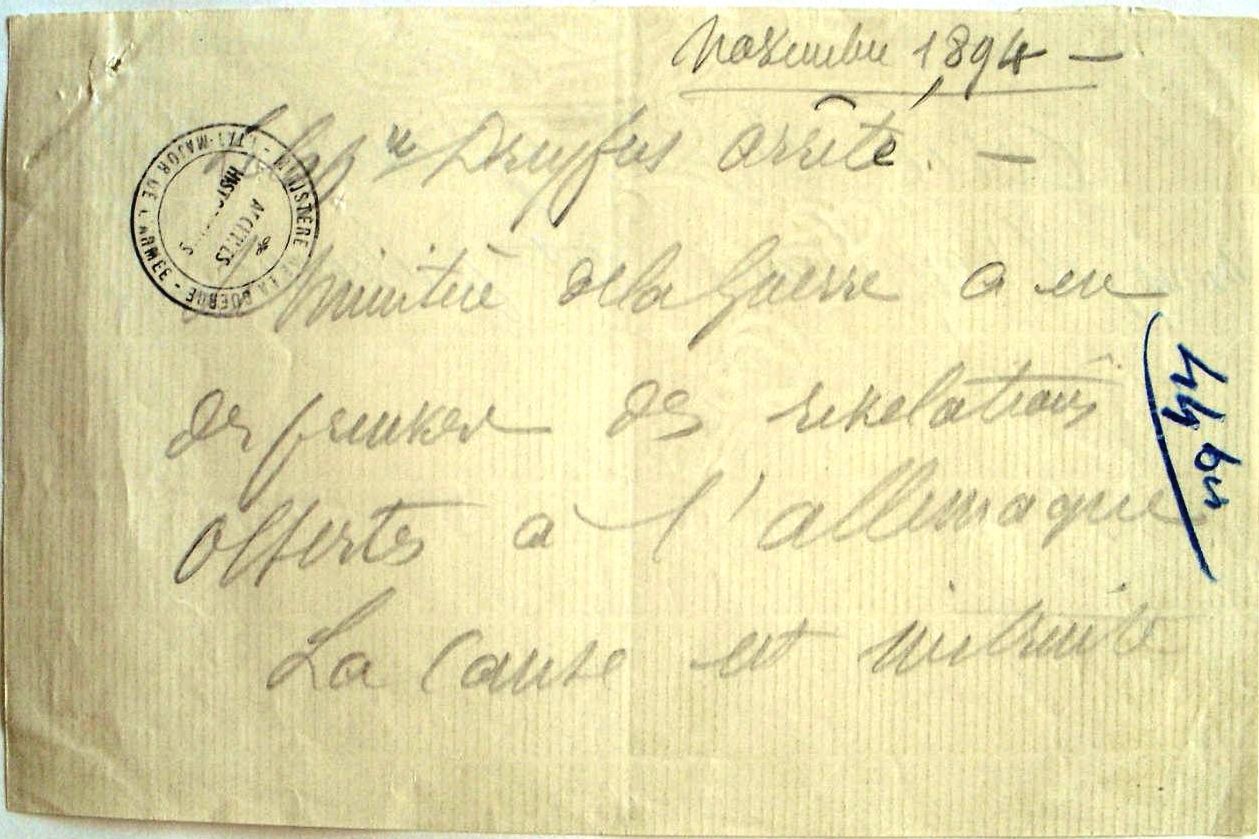 Novembre 1894 —
Le Cap ne Dreyfus arrêté. —
Le Ministère de la Guerre a eu
des preuves des relations
offertes à l'allemagne
La cause est instruite
44 bis
MINISTÈRE DE LA GUERRE - ETAT-MAJOR DE L'ARMÉE -
ARCHIVES